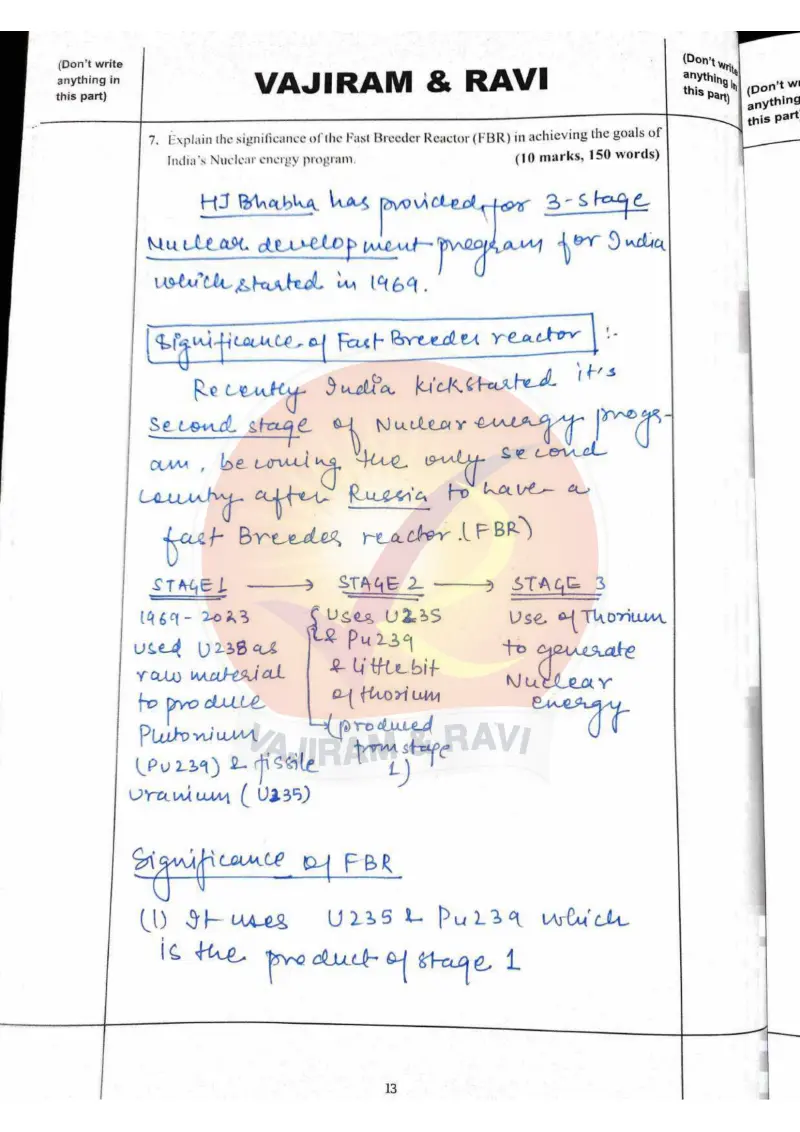 (Don't write
anything in
this part)
VAJIRAM & RAVI
(Don't write
anything in
this part)
(Don't wr
anything
this part
7. Explain the significance of the Fast Breeder Reactor (FBR) in achieving the goals of
India's Nuclear energy program. (10 marks, 150 words)
HJ Bhabha has provided for 3-stage
Nuclear development program for India
which started in 1969.
Significance of Fast Breeder reactor :-
Recently India kickstarted it's
second stage of Nuclear energy progr-
am, becoming the only second
country after Russia to have a
fast Breeder reactor. (FBR)
STAGE 1 → STAGE 2 → STAGE 3
1969-2023
used U238 as
raw material
to produce
Plutonium
(PU239) & fissile
Uranium (U235)
Uses U235
& Pu239
& little bit
of thorium
(produced
from stage
1)
Use of Thorium
to generate
Nuclear
energy
VAJIRAM & RAVI
Significance of FBR
(1) It uses U235 & Pu239 which
is the product of stage 1
13